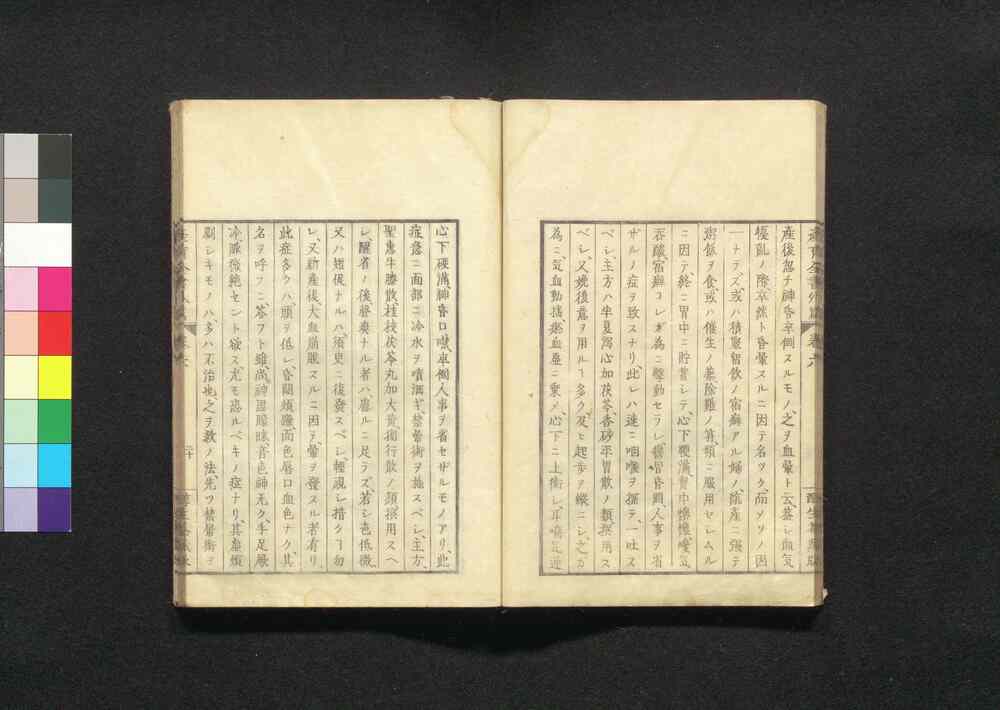 産後忽チ神昏卒倒スルモノ、之ヲ血暈ト云、蓋シ血氣
擾亂ノ際、卒然ト昏暈スルニ因テ名ツク、而メソノ因
一ナラズ、或ハ積聚留飲ノ宿癖アル婦ノ、臨産ニ強テ
粥飯ヲ食、或ハ催生ノ薬、除難ノ算、頻ニ服用セシムル
ニ因テ、終ニ胃中ニ貯蓄シテ、心下鞕満、胃中懊憹嘈
呑酸宿癖コレガ為ニ擊動セラレ、鬱冒昏聞人事ヲ省
ザルノ症ヲ致スナリ、此レハ速ニ咽喉ヲ探テ、一吐ス
ベシ、主方ハ半夏瀉心加茯苓、香砂平胃散ノ類撰用ス
ベシ、又娩後蓐ヲ用ルヿ多ク、及ヒ起歩ヲ縱ニシ、之カ
為ニ氣血動搖、瘀血虚ニ乗メ、心下ニ上衝シ、耳鳴
心下硬満、神昏口噤、卒倒人事ヲ省セザルモノアリ、此
症急ニ面部ニ冷水ヲ噴洒ギ、禁暈術ヲ施スベシ、主方
聖恵牛膝散、桂枝茯苓丸加大黄、衛行散ノ類撰用スヘ
シ、醒省ノ後、聲爽ナル者ハ、慮ルニ足ラズ、若シ色低微
又ハ短促ナルハ、須臾ニ復發スベシ、軽視シ措クヿ勿
レ、又新産後、大血崩脱スルニ因テ、暈ヲ發スル者有リ
此症多クハ頭ヲ低レ、昏聞煩躁、面色唇口血色ナク、其
名ヲ呼フニ、荅フト雖、尚神思朦昧、音色神无ク、手足厥
冷、脈微絶セント欲ス、尤モ恐ルベキノ症ナリ、其虚煩
劇シキモノハ、多ハ不治也、之ヲ救ノ法、先ツ禁暈術ヲ